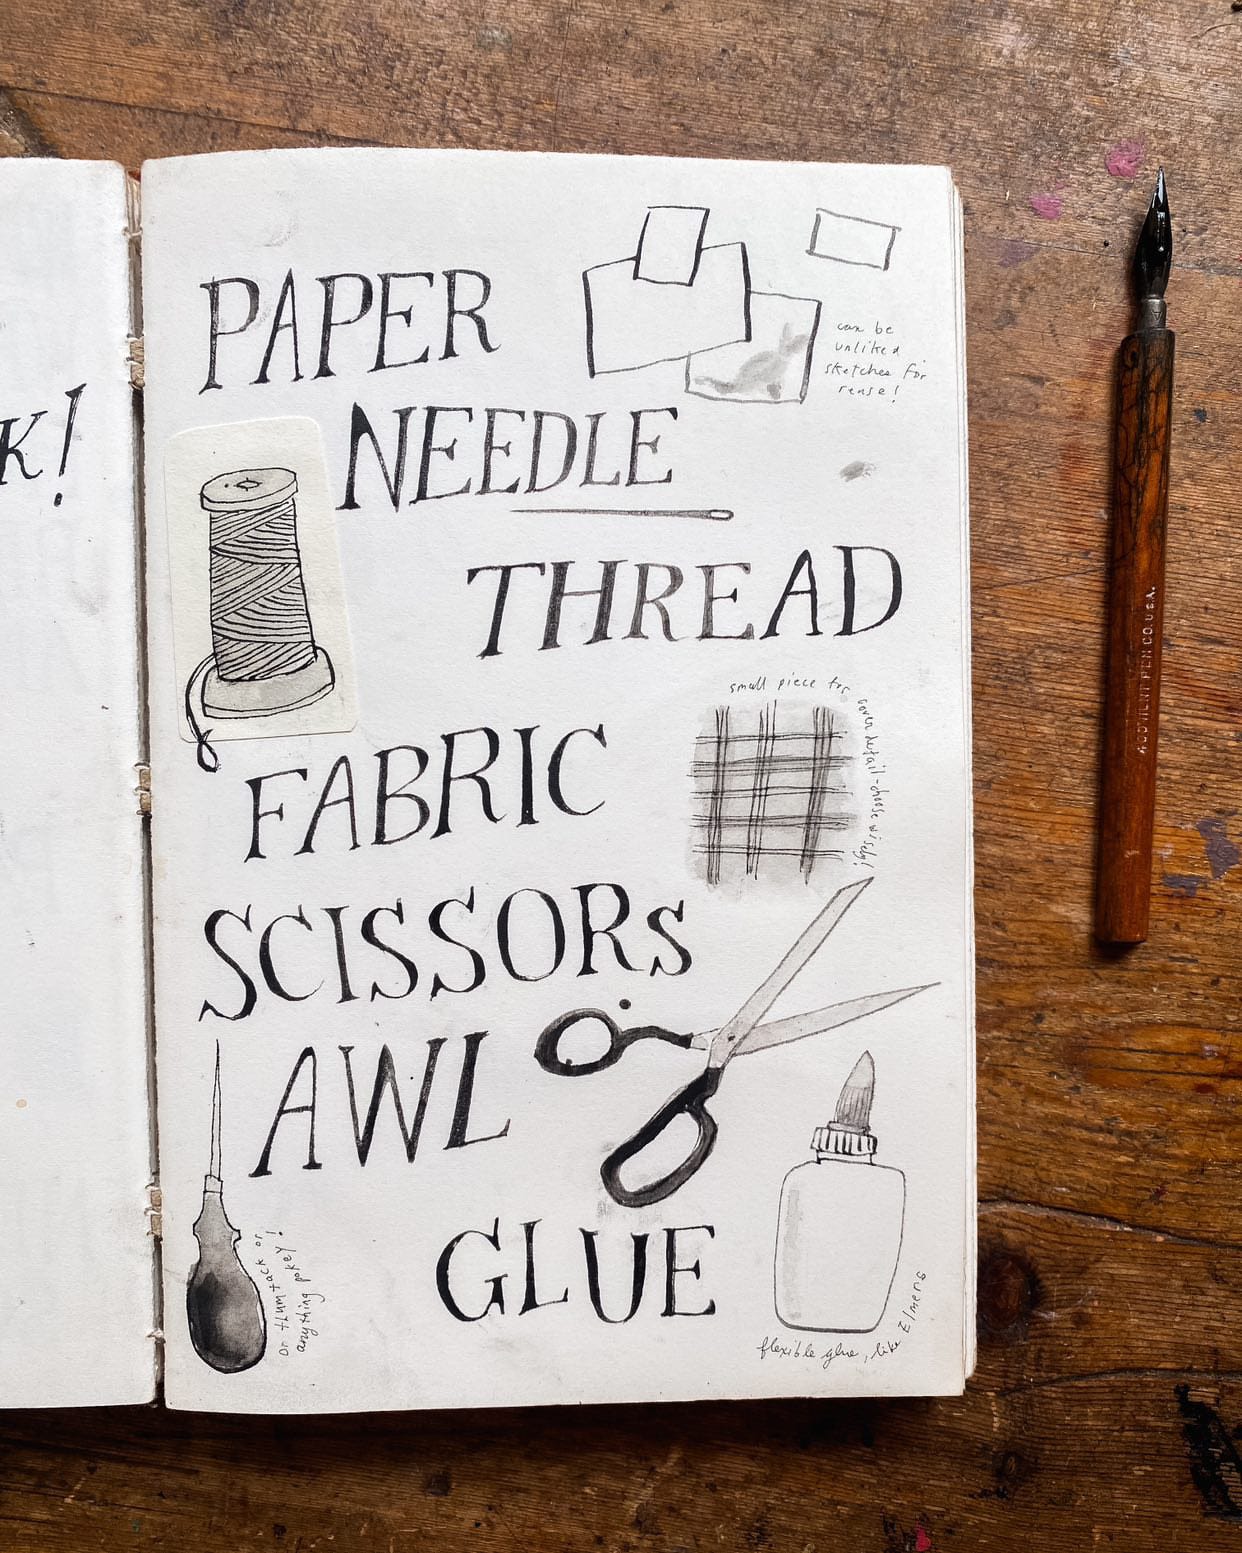 K!
PAPER
can be
unliked
sketches for
reuse!
NEEDLE
THREAD
small piece for cover detail - choose wisely!
FABRIC
SCISSORS
AWL
or thumtack or
anything pokey!
GLUE
flexible glue, like Elmers
HUNT PEN CO. U.S.A.